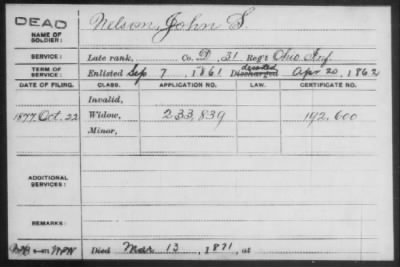 DEAD
NAME OF SOLDIER: Nelson, John S.
SERVICE: Late rank, Co. D, 31 Reg't Ohio Inf.
TERM OF SERVICE: Enlisted Sep 7, 1861 Discharged deserted Apr 20, 1862
DATE OF FILING. CLASS. APPLICATION NO. LAW. CERTIFICATE NO.
Invalid,
1877, Oct. 22 Widow, 233,839 192,600
Minor,
ADDITIONAL SERVICES:
REMARKS:
Died Mar 13, 1871, at